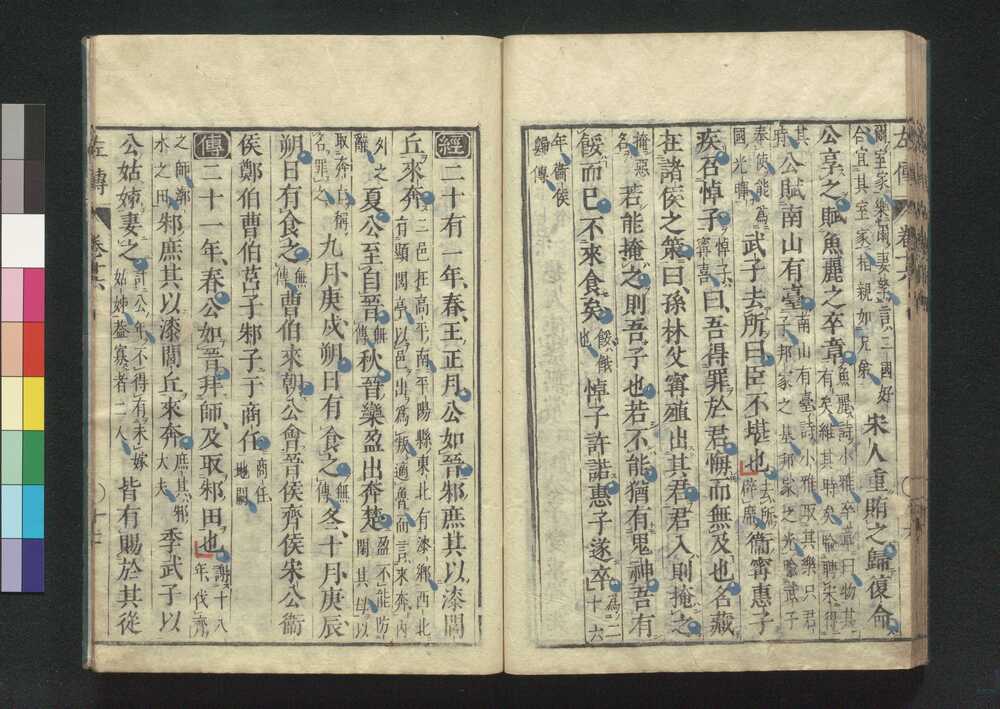 左傳 卷十六
爾室家樂爾妻帑言二國好合宜其室家相親如兄弟 宋人重賄之歸復命
公享之賦魚麗之卒章 魚麗詩小雅卒章曰物其有矣維其時矣喻聘宋得
其時 公賦南山有臺 南山有臺詩小雅取其樂只君子邦家之基邦家之光喻武子
奉使能爲國光暉 武子去所曰臣不堪也 去所辟席 衞甯惠子
疾召悼子 悼子甯喜 曰吾得罪於君悔而無及也名藏
在諸侯之策曰孫林父甯殖出其君君入則掩之
掩惡名 若能掩之則吾子也若不能猶有鬼神吾有
餒而已不來食矣 餒餓也 悼子許諾惠子遂卒 爲二十六
年衞侯歸傳
經 二十有一年春王正月公如晉邾庶其以漆閭
丘來奔 二邑在高平南平陽縣東北有漆鄉西北有顯閭亭以邑出爲叛適魯而言來奔内
外之辭 夏公至自晉 無傳 秋晉欒盈出奔楚 盈不能防閑其母以
取奔亡稱名罪之 九月庚戌朔日有食之 無傳 冬十月庚辰
朔日有食之 無傳 曹伯來朝公會晉侯齊侯宋公衞
侯鄭伯曹伯莒子邾子于商任 商任地闕
傳 二十一年春公如晉拜師及取邾田也 謝十八年伐齊
之師漷水之田 邾庶其以漆閭丘來奔 庶其邾大夫 季武子以
公姑姊妻之 計公年不得有未嫁姑姊蓋寡者二人 皆有賜於其從
左傳 卷十六